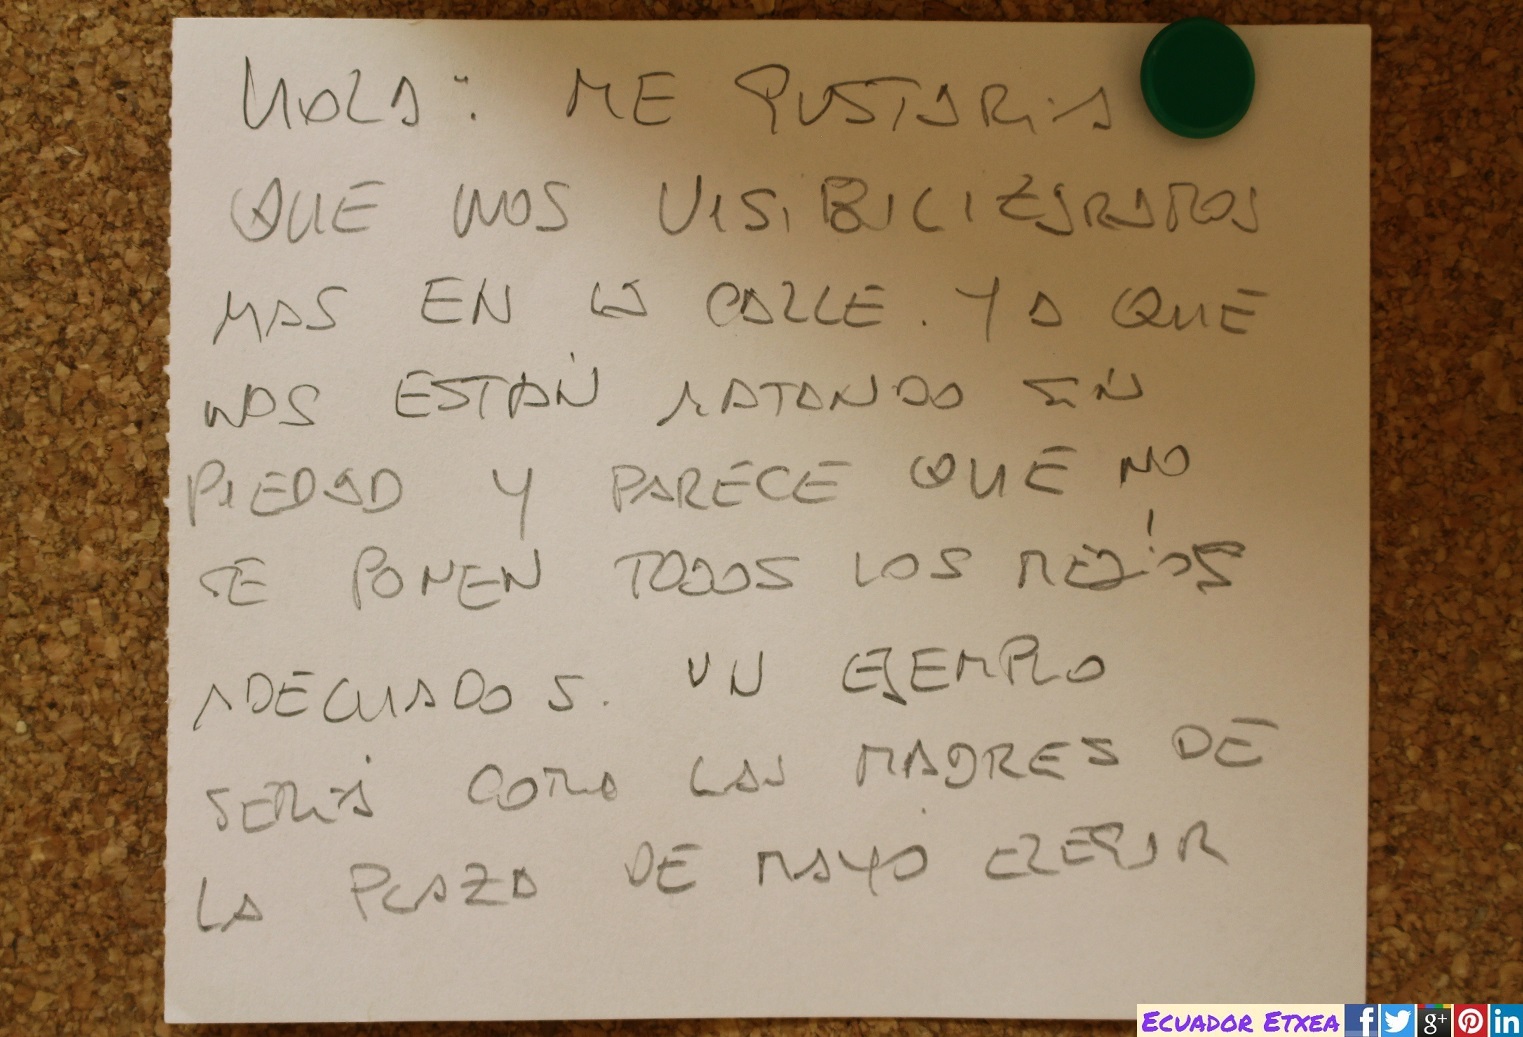 HOLA: ME GUSTARIA
QUE NOS VISIBILIZARAMOS
MAS EN LA CALLE. YA QUE
NOS ESTÁN MATANDO SIN
PIEDAD Y PARECE QUE NO
SE PONEN TODOS LOS MEDIOS
ADECUADOS. UN EJEMPLO
SERIA COMO LAS MADRES DE
LA PLAZA DE MAYO ELEGIR
ECUADOR ETXEA f g+ in